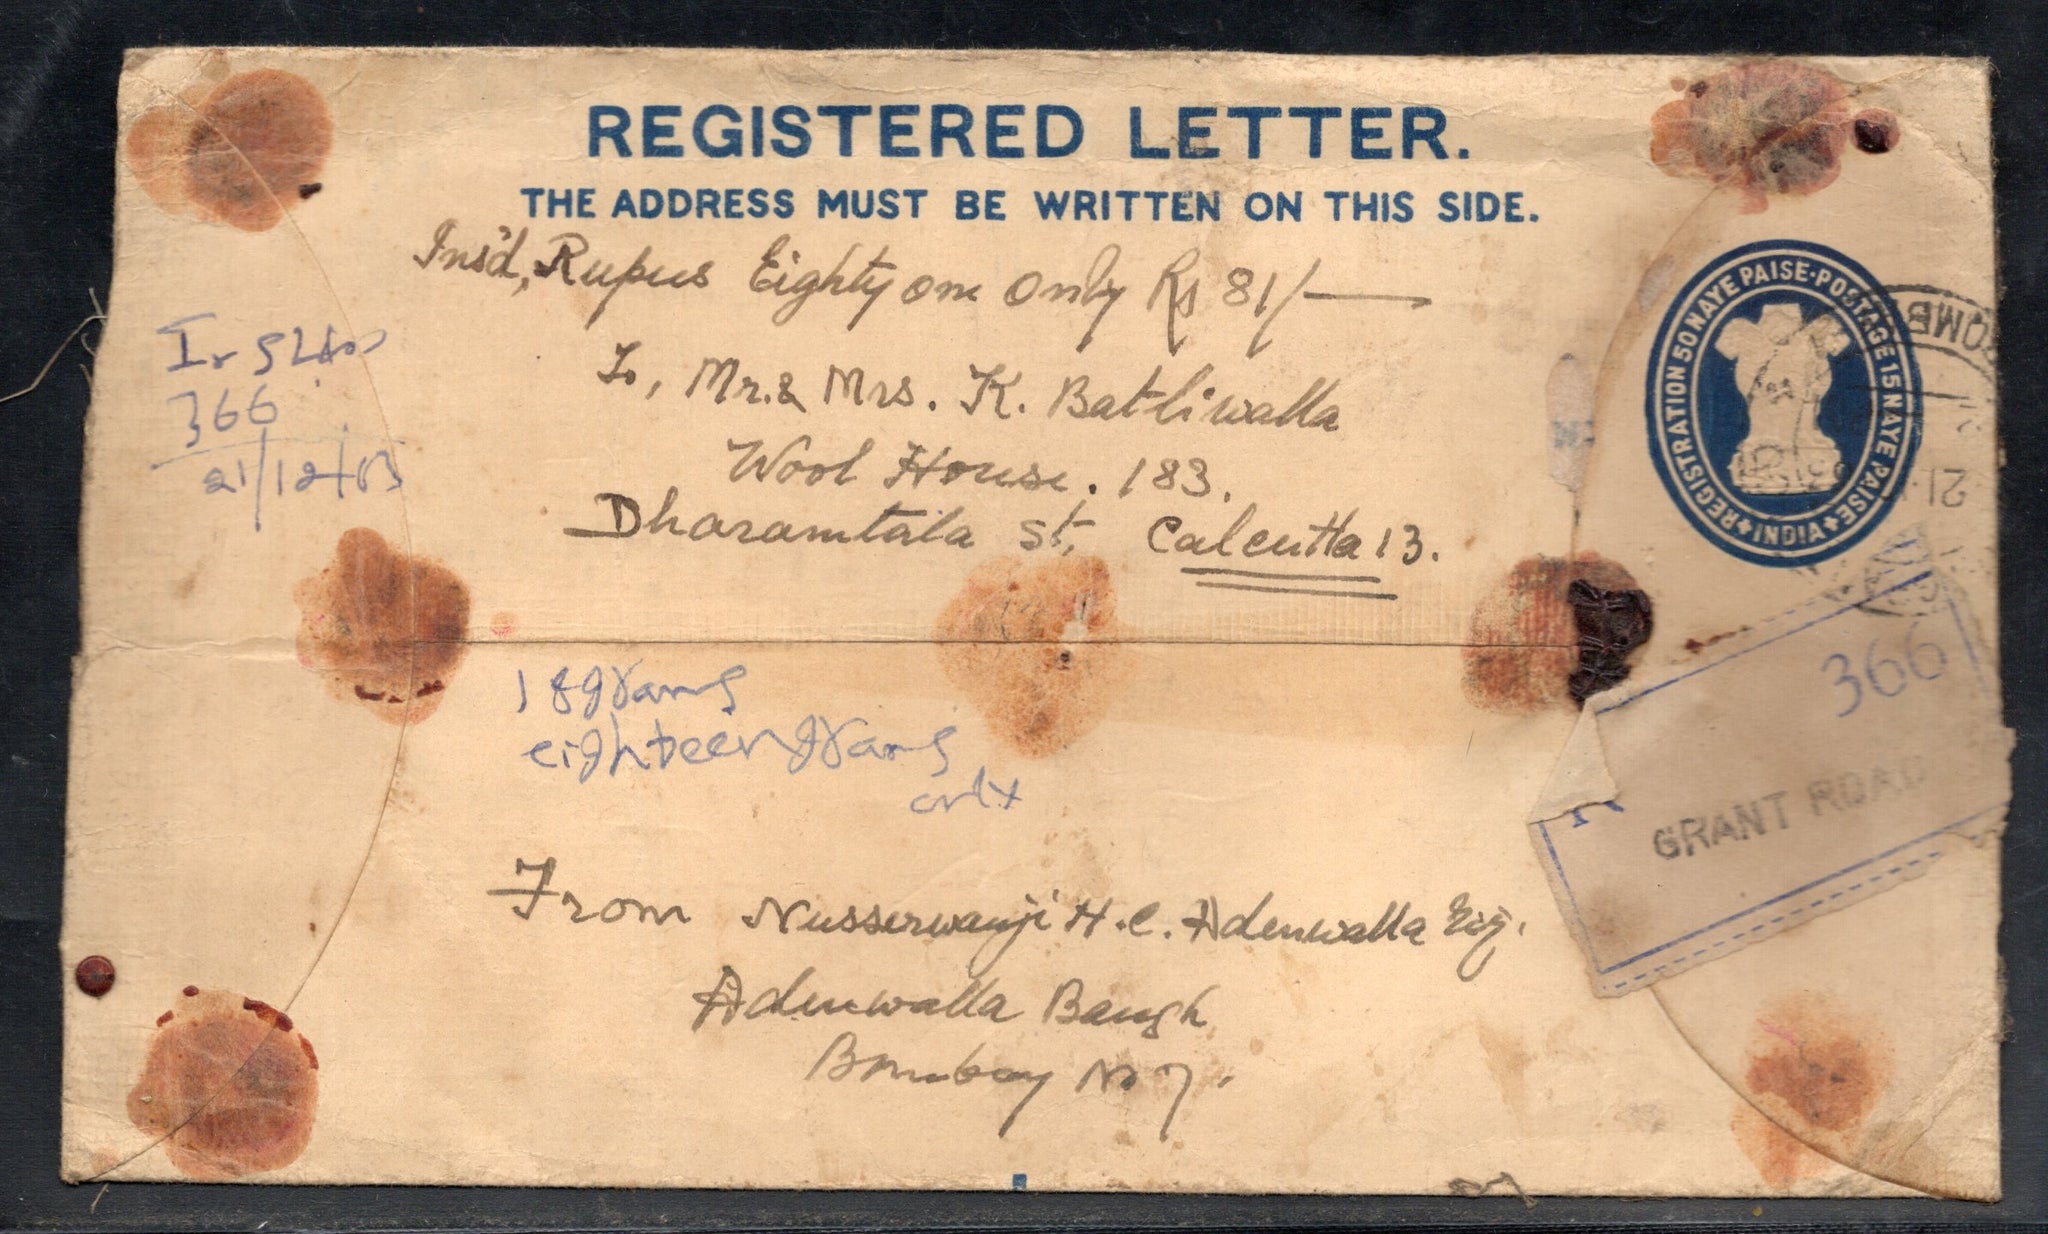 REGISTERED LETTER.
THE ADDRESS MUST BE WRITTEN ON THIS SIDE.
Ins'd, Rupees Eighty one only Rs 81/-
To, Mr. & Mrs. K. Batliwalla
Wool House. 183.
Dharamtala St, Calcutta 13.
REGISTRATION 50 NAYE PAISE·POSTAGE 15 NAYE PAISE
INDIA
366
21/12/63
18 grams
eighteen grams
only
366
GRANT ROAD
From Nusserwanji H. C. Adenwalla Esq.
Adenwalla Baugh
Bombay No 7.